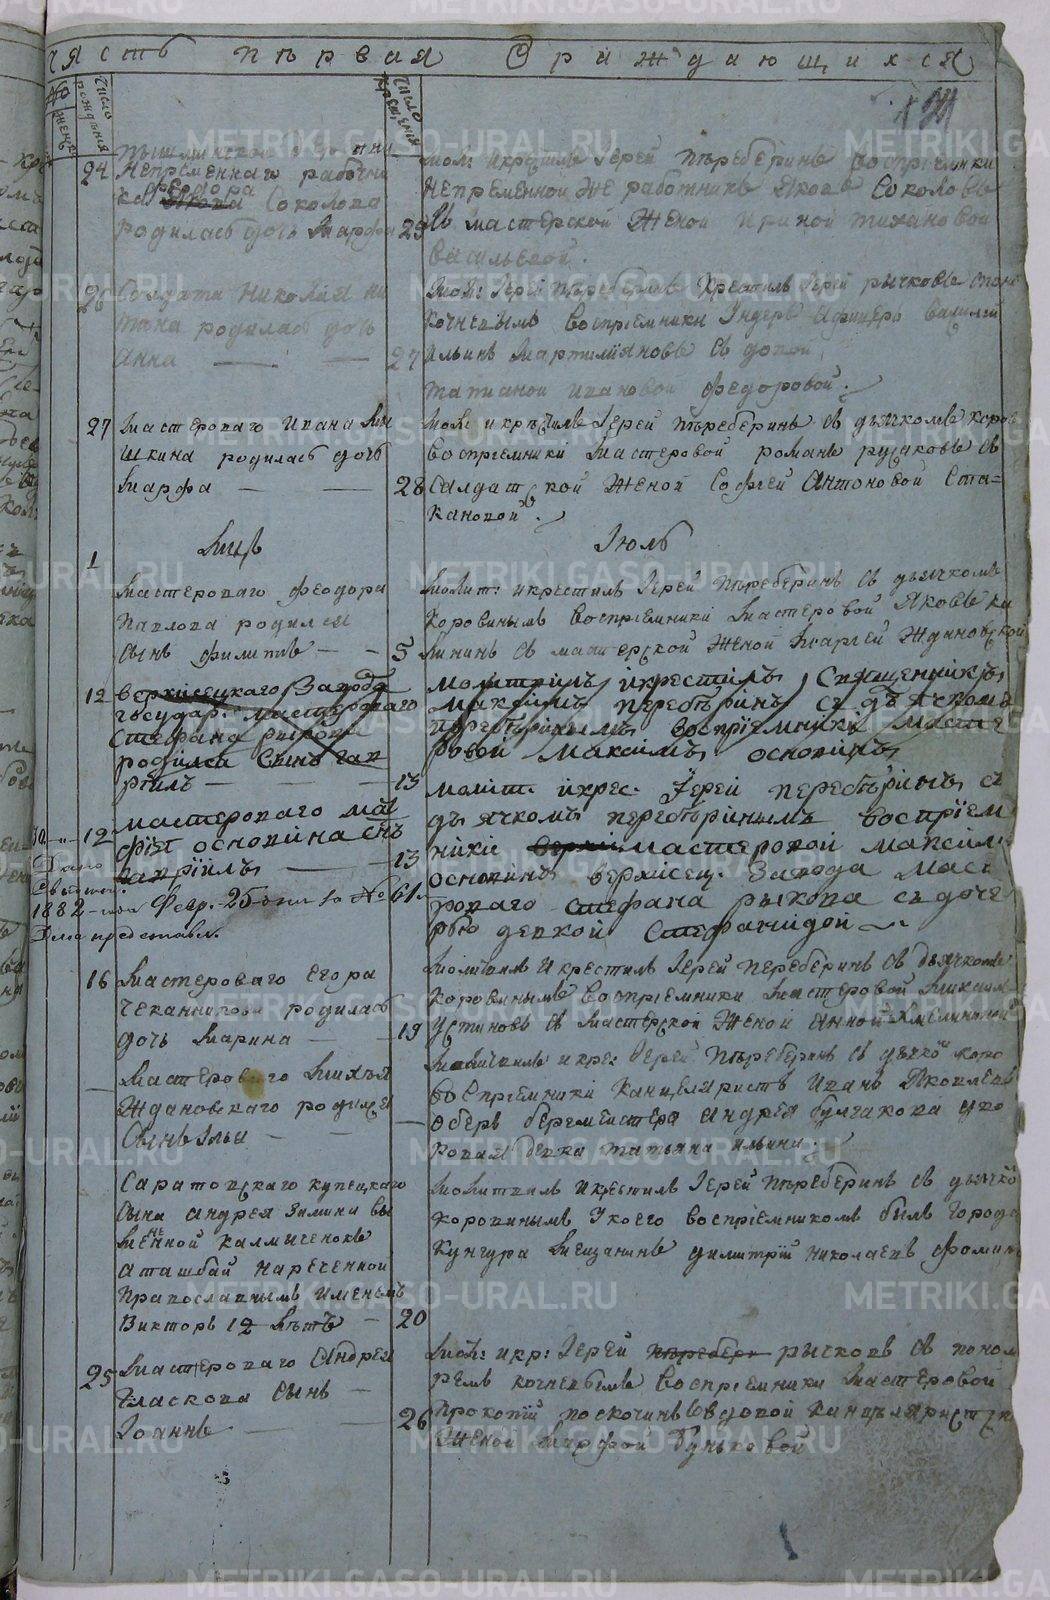 Часть первая О раждающихся
Число рожденiя
Число крещенiя
24 Непременнаго работни
ка Соколова
родилась дочь Марфа 25
мол: и крстилъ Iерей Пъреберинъ воспрiемники
непременной же работникъ Яковъ Соколовъ
съ мастерской женой Ириной Тихановой
Васильевой.
26 Солдата Николая Ни
китина родилась дочь
Анна — — 27
Мол: Iерей Пъреберинъ крстилъ Iерей Рычковъ
Кочневымъ воспрiемники
Ильинъ Мартимiяновъ съ
татианой Ивановой Федоровой.
27 Мастероваго Ивана Ми
шкина родилась дочь
Марфа — — 28
Мол: и крестилъ Iерей Пъреберинъ съ дьячкомъ Коров
воспрiемники мастеровой романъ русаковъ съ
Салдатской женой Софiей Антоновой Ста=
кановой.
Мцъ Iюль
1
Мастероваго Феодора
Павлова родился
сынъ Филиппъ — — 5
Молит: и крестилъ Iерей Пъреберинъ съ дьячкомъ
Коровинымъ воспрiемники мастеровой Яковъ Ка
лининъ съ мастерской женой Ждановской
12 верхисецкаго завода
государ. мастероваго
Стефана рыкова
родился сынъ гав
рiилъ — — 13
молитвилъ и крестилъ Священникъ
Максимъ перебъринъ съ дъячкомъ
перебърiнымъ воспрiемники масте
ровой Максiмъ основинъ
12 мастероваго мат
фiя основина снъ
гаврiилъ — 13
молит. и крес. Iерей перебърiнъ съ
дъячкомъ перебърiнымъ воспрiем
никiе мастеровой максимъ
основинъ верхiсец. завода маст
роваго стефана рыкова съ доче
рью девкой Стефанидой
1882 -го Февр. 25 дня за № 61.
16 Мастероваго Егора
Чеканникова родилась
дочь Марина — — 19
Молитвилъ и крестилъ Iерей Переберинъ съ дьячкомъ
Коровинымъ воспрiемники мастеровой
Устиновъ съ мастерской женой Анной Хмелининой
— Мастероваго Михея
Ждановскаго родился
сынъ Илья — —
Молитвилъ и крес: Iерей Пъреберинъ съ дьячкомъ Коро
воспрiемники канцеляристъ Иванъ Яковлевъ
оберъ бергмеистера Андрея Булгакова дво
ровая девка татьяна ильина.
Саратовскаго купецкаго
сына Андрея Замини вы
мененной калмыченокъ
Аташбай нареченной
православнымъ именемъ
Викторъ 12 лътъ — 20
Молитвилъ и крестилъ Iерей Пъреберинъ съ дьячко
коровинымъ у коего воспрiемникомъ былъ города
Кунгура мещанинъ Димитрiй Николаевъ Фомин
25 Мастероваго Андрея
Гласкова сынъ —
Iоаннъ — 26
Мол: и кр: Iерей Рычковъ съ поном
ремъ Кочневымъ воспрiемники мастеровой
Прокопiй Поскочинъ со вдовой канцеляристск
женой Марфой Буньковой
METRIKI.GASO-URAL.RU